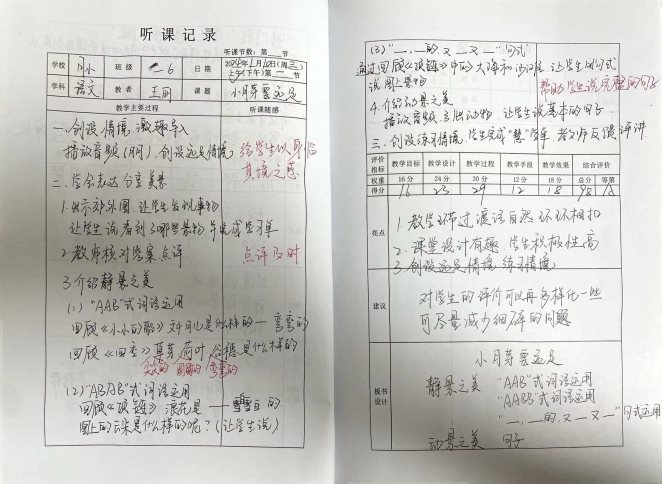 听课记录
听课节数：第 节
学校 附小 班级 一6 日期 2024年1月10日(周三)
上午(下午)第一节
学科 语文 教者 王丽 课题 小月芽要远足
教学主要过程 听课随感
一.创设情境 激趣导入
播放音频(月月),创设远足情境 给学生以身临
其境之感
二.学会表达 分享美景
1.出示郊外图,让学生发现事物
让学生说看到了哪些景物 并完成学习单
2.教师核对答案点评 点评及时
3.介绍静景之美
(1) "AAB"式词语运用
回顾《小小的船》文中月儿是什么样的——弯弯的
回顾《四季》草芽 荷叶 谷穗是什么样的
尖尖的 圆圆的 弯弯的
(2)"ABB"式词语运用
回顾《项链》浪花是——雪白雪白的
图上的云朵是什么样的呢?(让学生说)
(3)"一,一的,又一又一"句式
通过回顾《项链》中的大海和沙滩 让学生用句式
说图上景物 帮助学生说完整的句子
4.介绍动景之美
播放视频,主出动物,让学生说基本的句子
三.创设练习情境,学生完成"慧"学单 教师反馈评讲
评价指标 教学目标 教学设计 教学过程 教学手段 教学效果 综合评价
权重 16分 24分 30分 12分 18分 总分 等第
得分 16 23 29 12 18 98 A
亮点
1.教学环节过渡语自然 环环相扣
2.课堂设计有趣 学生积极性高
3.创设远足情境 练习情境
建议
对学生的评价可以再多样化一些
可尽量减少细碎的问题
板书设计
小月芽要远足
静景之美 "AAB"式词语运用
"ABB"式词语运用
"一,一的,又一又一"句式运用
动景之美 句子